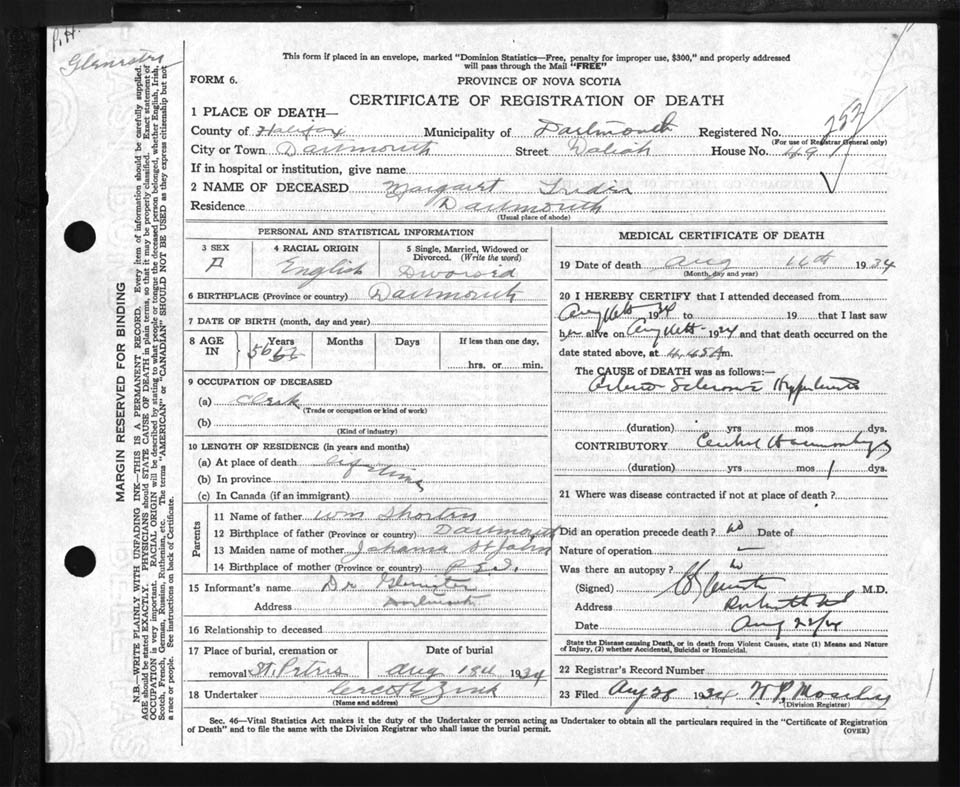 P.H.
This form if placed in an envelope, marked "Dominion Statistics—Free, penalty for improper use, $300," and properly addressed
will pass through the Mail "FREE"
FORM 6.
PROVINCE OF NOVA SCOTIA
CERTIFICATE OF REGISTRATION OF DEATH
1 PLACE OF DEATH—
County of Halifax Municipality of Dartmouth Registered No. 252
(For use of Registrar General only)
City or Town Dartmouth Street House No. 49
If in hospital or institution, give name
2 NAME OF DECEASED Margaret
Residence Dartmouth
(Usual place of abode)
PERSONAL AND STATISTICAL INFORMATION
3 SEX F
4 RACIAL ORIGIN English
5 Single, Married, Widowed or Divorced. (Write the word)
6 BIRTHPLACE (Province or country) Dartmouth
7 DATE OF BIRTH (month, day and year)
8 AGE IN Years 56 Months Days If less than one day, hrs. or min.
9 OCCUPATION OF DECEASED
(a) Clerk
(Trade or occupation or kind of work)
(b)
(Kind of industry)
10 LENGTH OF RESIDENCE (in years and months)
(a) At place of death lifetime
(b) In province
(c) In Canada (if an immigrant)
Parents
11 Name of father Wm
12 Birthplace of father (Province or country) Dartmouth
13 Maiden name of mother Johanna St John
14 Birthplace of mother (Province or country) P.E.I.
15 Informant's name Dr
Address Dartmouth
16 Relationship to deceased
17 Place of burial, cremation or removal St. Peters
Date of burial Aug 18th 1934
18 Undertaker Zink
(Name and address)
MEDICAL CERTIFICATE OF DEATH
19 Date of death Aug 16th 1934
(Month, day and year)
20 I HEREBY CERTIFY that I attended deceased from
Aug 1934 to 19 that I last saw
her alive on Aug 1934 and that death occurred on the
date stated above, at 4.45 A m.
The CAUSE of DEATH was as follows:—
Arterio Sclerosis
(duration) yrs mos dys.
CONTRIBUTORY
(duration) yrs mos 1 dys.
21 Where was disease contracted if not at place of death?
Did an operation precede death? no Date of
Nature of operation
Was there an autopsy? no
(Signed) M.D.
Address
Date Aug 22/34
State the Disease causing Death, or in death from Violent Causes, state (1) Means and Nature
of Injury, (2) whether Accidental, Suicidal or Homicidal.
22 Registrar's Record Number
23 Filed Aug 28 1934
(Division Registrar)
Sec. 46—Vital Statistics Act makes it the duty of the Undertaker or person acting as Undertaker to obtain all the particulars required in the "Certificate of Registration
of Death" and to file the same with the Division Registrar who shall issue the burial permit.
(OVER)
MARGIN RESERVED FOR BINDING
N.B.—WRITE PLAINLY WITH UNFADING INK—THIS IS A PERMANENT RECORD. Every item of information should be carefully supplied.
AGE should be stated EXACTLY. PHYSICIANS should STATE CAUSE OF DEATH in plain terms, so that it may be properly classified. Exact statement of
OCCUPATION is very important. RACIAL ORIGIN will be described by stating to what people or tongue the deceased person belonged, whether English, Irish,
Scotch, French, German, Russian, Ruthenian, etc. The terms "AMERICAN" or "CANADIAN" SHOULD NOT BE USED as they express citizenship but not
a race or people. See instructions on back of Certificate.